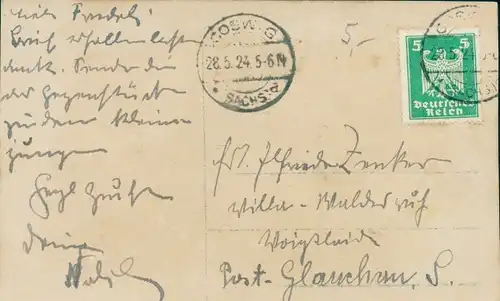 Liebe Friedel!
Brief erhalten besten
Dank. Sende dir
das Gegenstück
zu dem kleinen
Jungen
Herzl Grüße
Deine
COSWIG
28.5.24.5-6N
* SACHS.
5,-
5 5
Deutsches
Reich
COSWIG
28.5.24.5-6N
Frl. Elfriede Zenker
Villa - Waldesruh
Voigtlaide
Post- Glauchau, S.